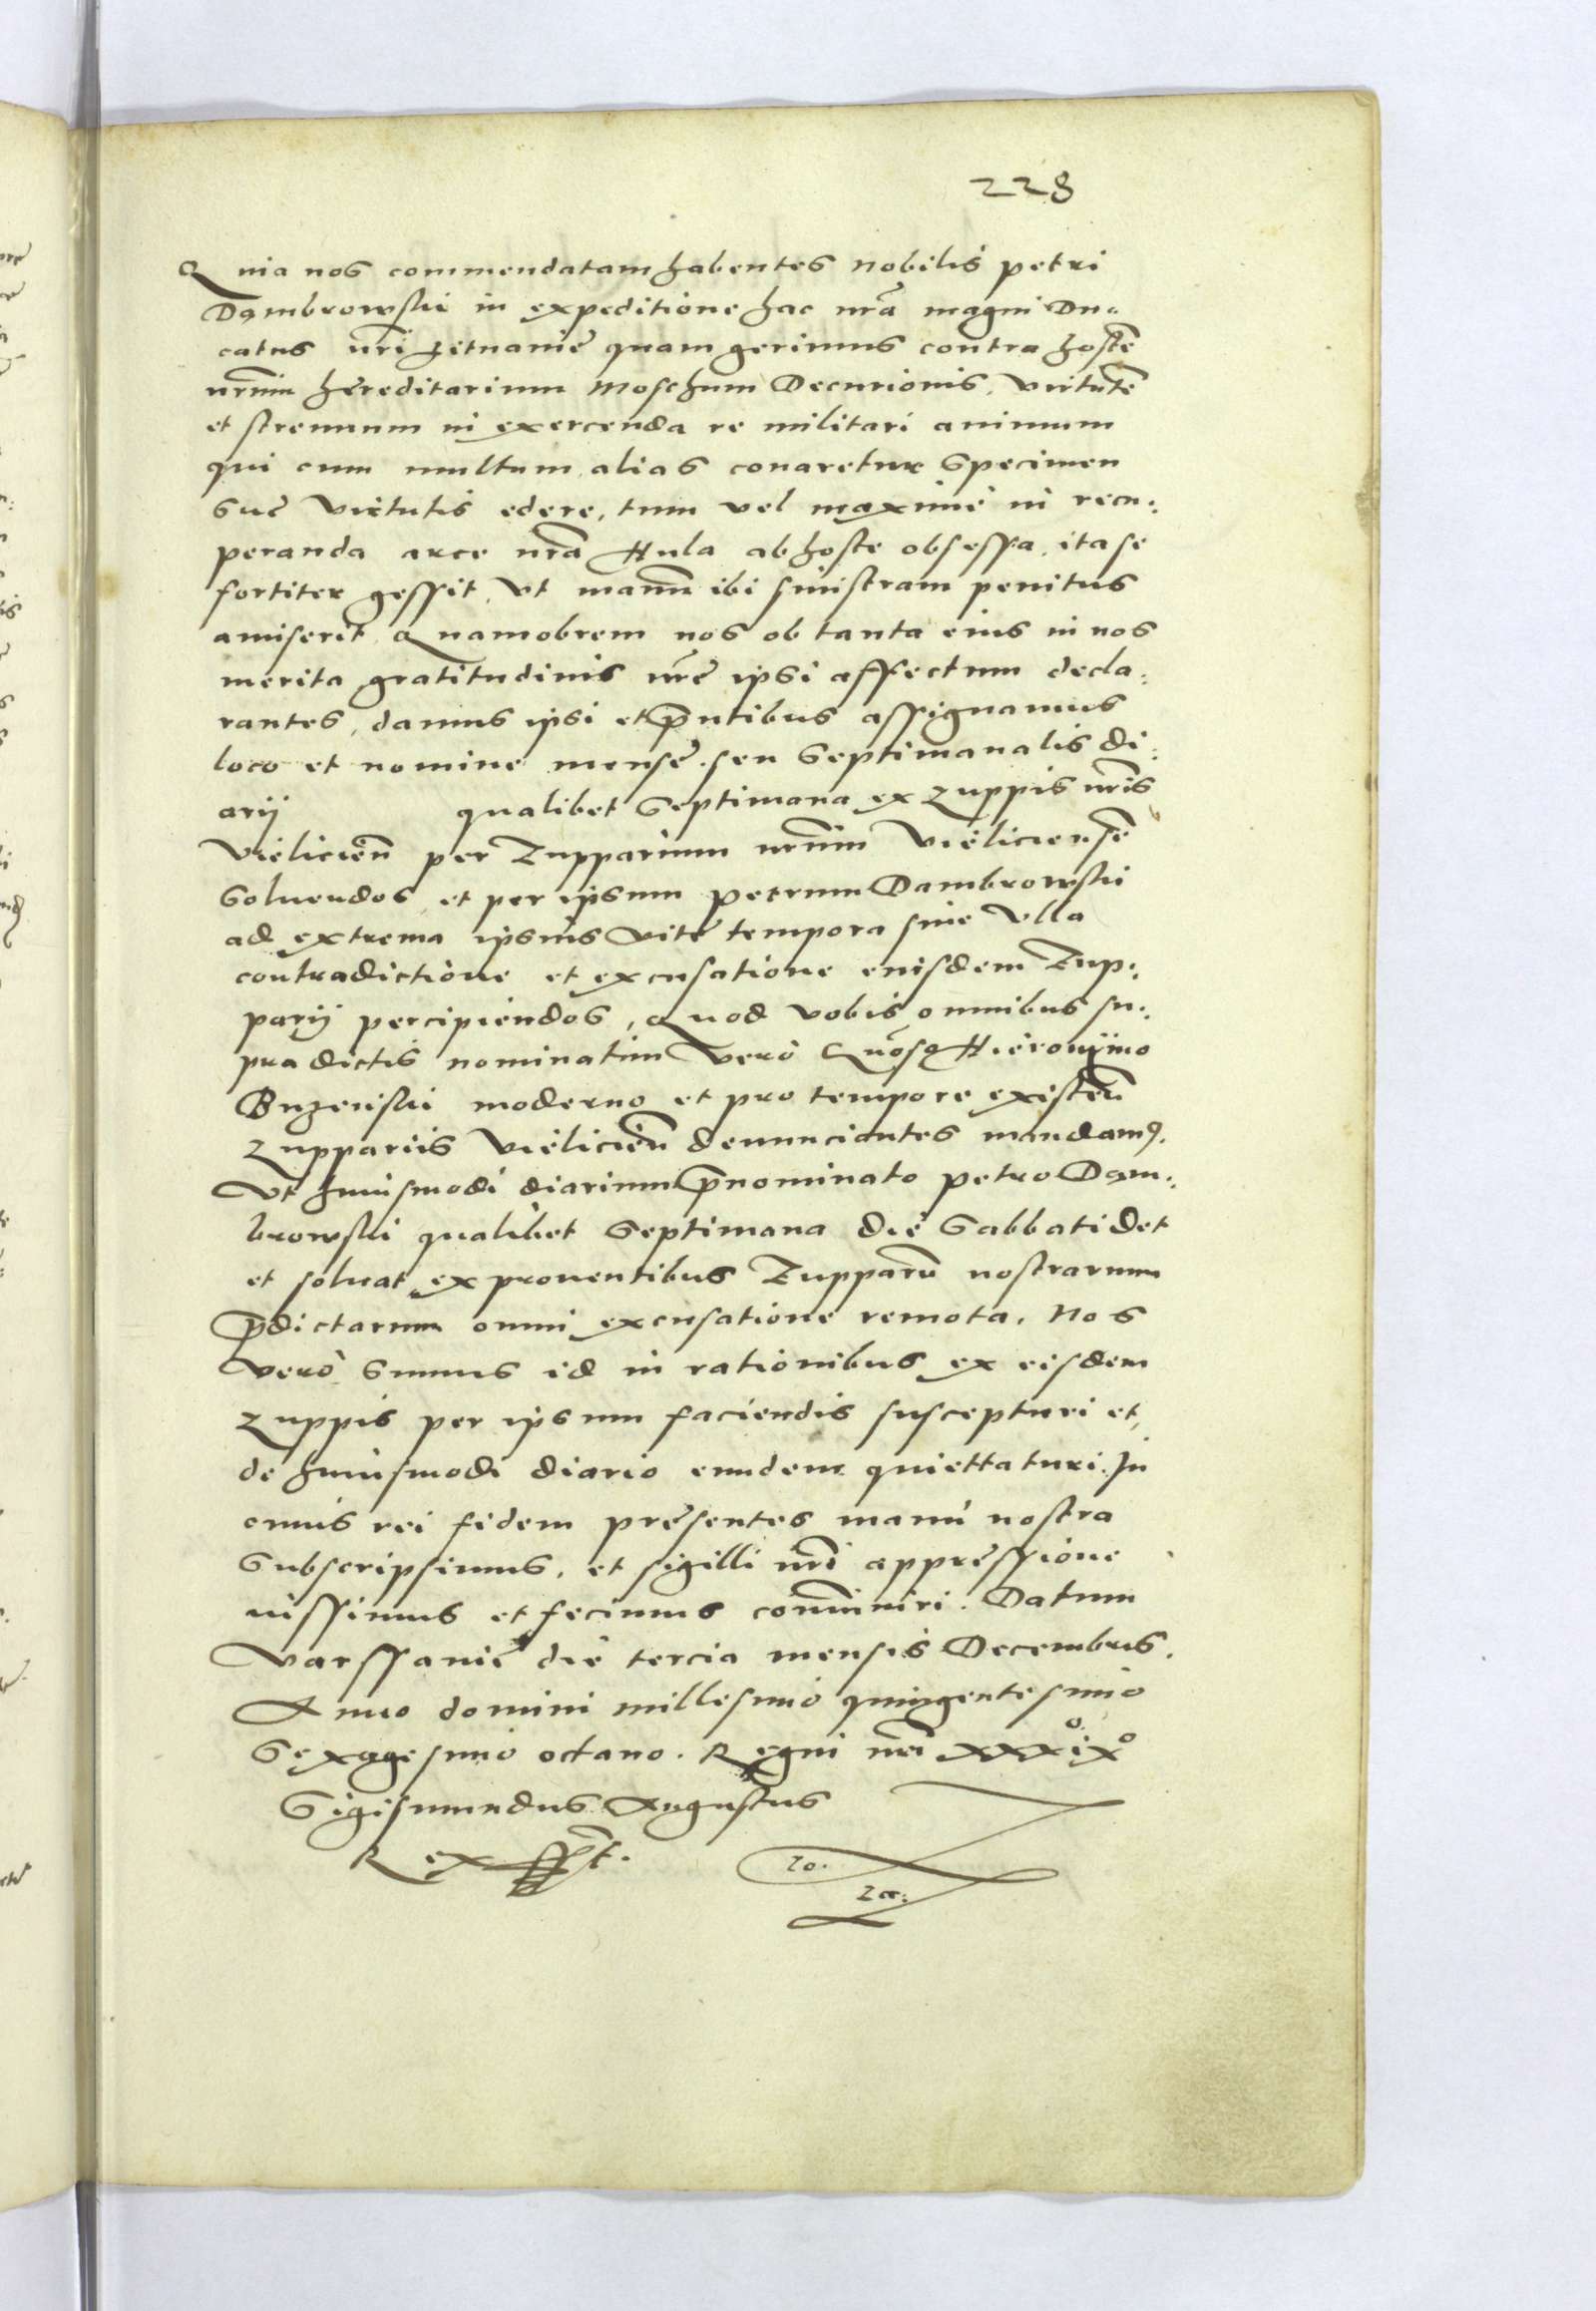 228
Quia nos commendatam habentes Nobilis Petri
Dąmbrowskii in expeditione hac nrã magni Du„
catus nri Lituanię quam gerimus contra hostẽ
nrm̃ hęreditarium Moschum Decurionis, virtutẽ
et strenuum in exercenda re militari animum
qui cum multum alias conaretur Specimen
suę virtutis edere, tum vel maxime in recu:
peranda arce nrã Hula ab hoste obsessa, ita se
fortiter gessit, vt manũ ibi sinistram penitus
amiserit. Quamobrem nos ob tanta eius in nos
merita gratitudinis nrẽ ipsi affectum decla:
rantes, damus ipsi et p̃ntibus assignamus
loco et nomine mensę. seu Septimanalis di:
arij qualibet Septimana ex Zuppis nris̃
Vieliciẽn per Zupparium nrm̃ Vieliciensẽ
Soluendos, et per ipsum Petrum Dambrowskii
ad extrema ipsius vitę tempora sine vlla
contradictione et excusatione eiusdem Zup:
parij percipiendos, Quod vobis omnibus su:
pra dictis nominatim verò Gñoso Hieronymo
Buzenskii moderno et pro tempore existeñ
Zuppariis Vielicieñ denunciantes mandamꝰ.
Vt huiusmodi diarium p̃nominato Petro Dąm:
browskii qualibet Septimana die Sabbati det
et soluat, ex prouentibus Zupparũ nostrarum
p̃dictarum omni excusatione remota. Nos
verò sumus id in rationibus ex eisdem
Zuppis per ipsum faciendis suscepturi et,
de huiusmodi diario eundem quiettaturi. In
cuius rei fidem pręsentes manu nostra
Subscripsimus, et sigilli nrĩ appressione
iussimus et fecimus com̃uniri. Datum
Varssauię die tercia mensis Decembris.
Anno domini millesimo quingentesimo
Sexagesimo octauo. Regni nrĩ xxxixº
Sigismundus Augustus
Rex sspt.